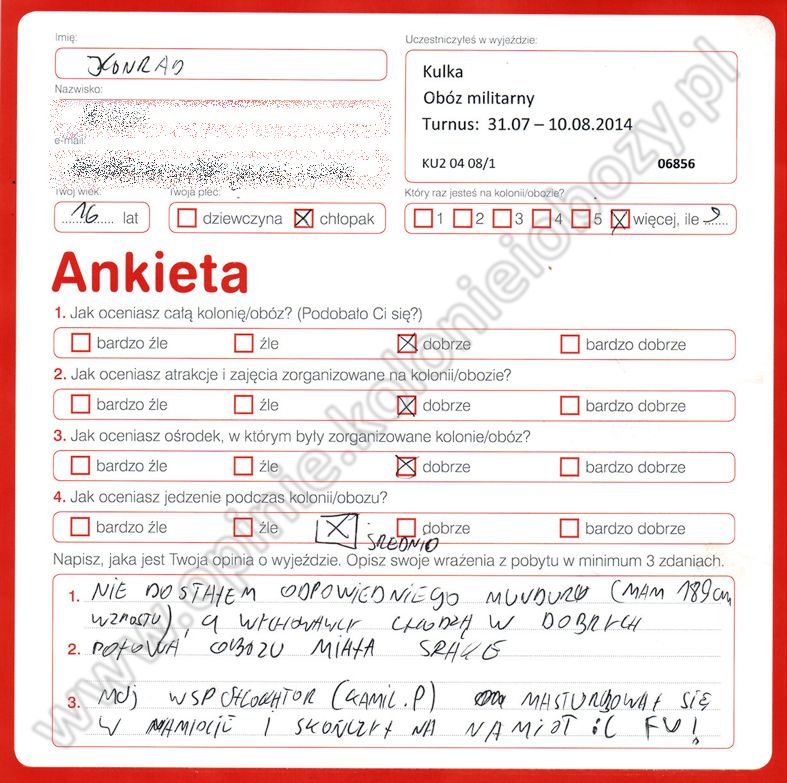 Imię:
KONRAD
Uczestniczyłeś w wyjeździe:
Kulka
Obóz militarny
Turnus: 31.07 – 10.08.2014
KU2 04 08/1 06856
Nazwisko:
e-mail:
Twój wiek:
16 lat
Twoja płeć:
dziewczyna chłopak
Który raz jesteś na kolonii/obozie?
1 2 3 4 5 więcej, ile 9
Ankieta
1. Jak oceniasz całą kolonię/obóz? (Podobało Ci się?)
bardzo źle źle dobrze bardzo dobrze
2. Jak oceniasz atrakcje i zajęcia zorganizowane na kolonii/obozie?
bardzo źle źle dobrze bardzo dobrze
3. Jak oceniasz ośrodek, w którym były zorganizowane kolonie/obóz?
bardzo źle źle dobrze bardzo dobrze
4. Jak oceniasz jedzenie podczas kolonii/obozu?
bardzo źle źle dobrze bardzo dobrze
ŚREDNIO
Napisz, jaka jest Twoja opinia o wyjeździe. Opisz swoje wrażenia z pobytu w minimum 3 zdaniach.
1. NIE DOSTAŁEM ODPOWIEDNIEGO MUNDURU (MAM 189cm
WZROSTU), A WYCHOWAWCY CHODZĄ W DOBRYCH
2. POŁOWA OBOZU MIAŁA SRAKE
3. MÓJ WSPÓŁLOKATOR (KAMIL.P) MASTURBOWAŁ SIĘ
W NAMIOCIE I SKOŃCZYŁ NA NAMIOT :C FU!
www.opinie.kolonieiobozy.pl